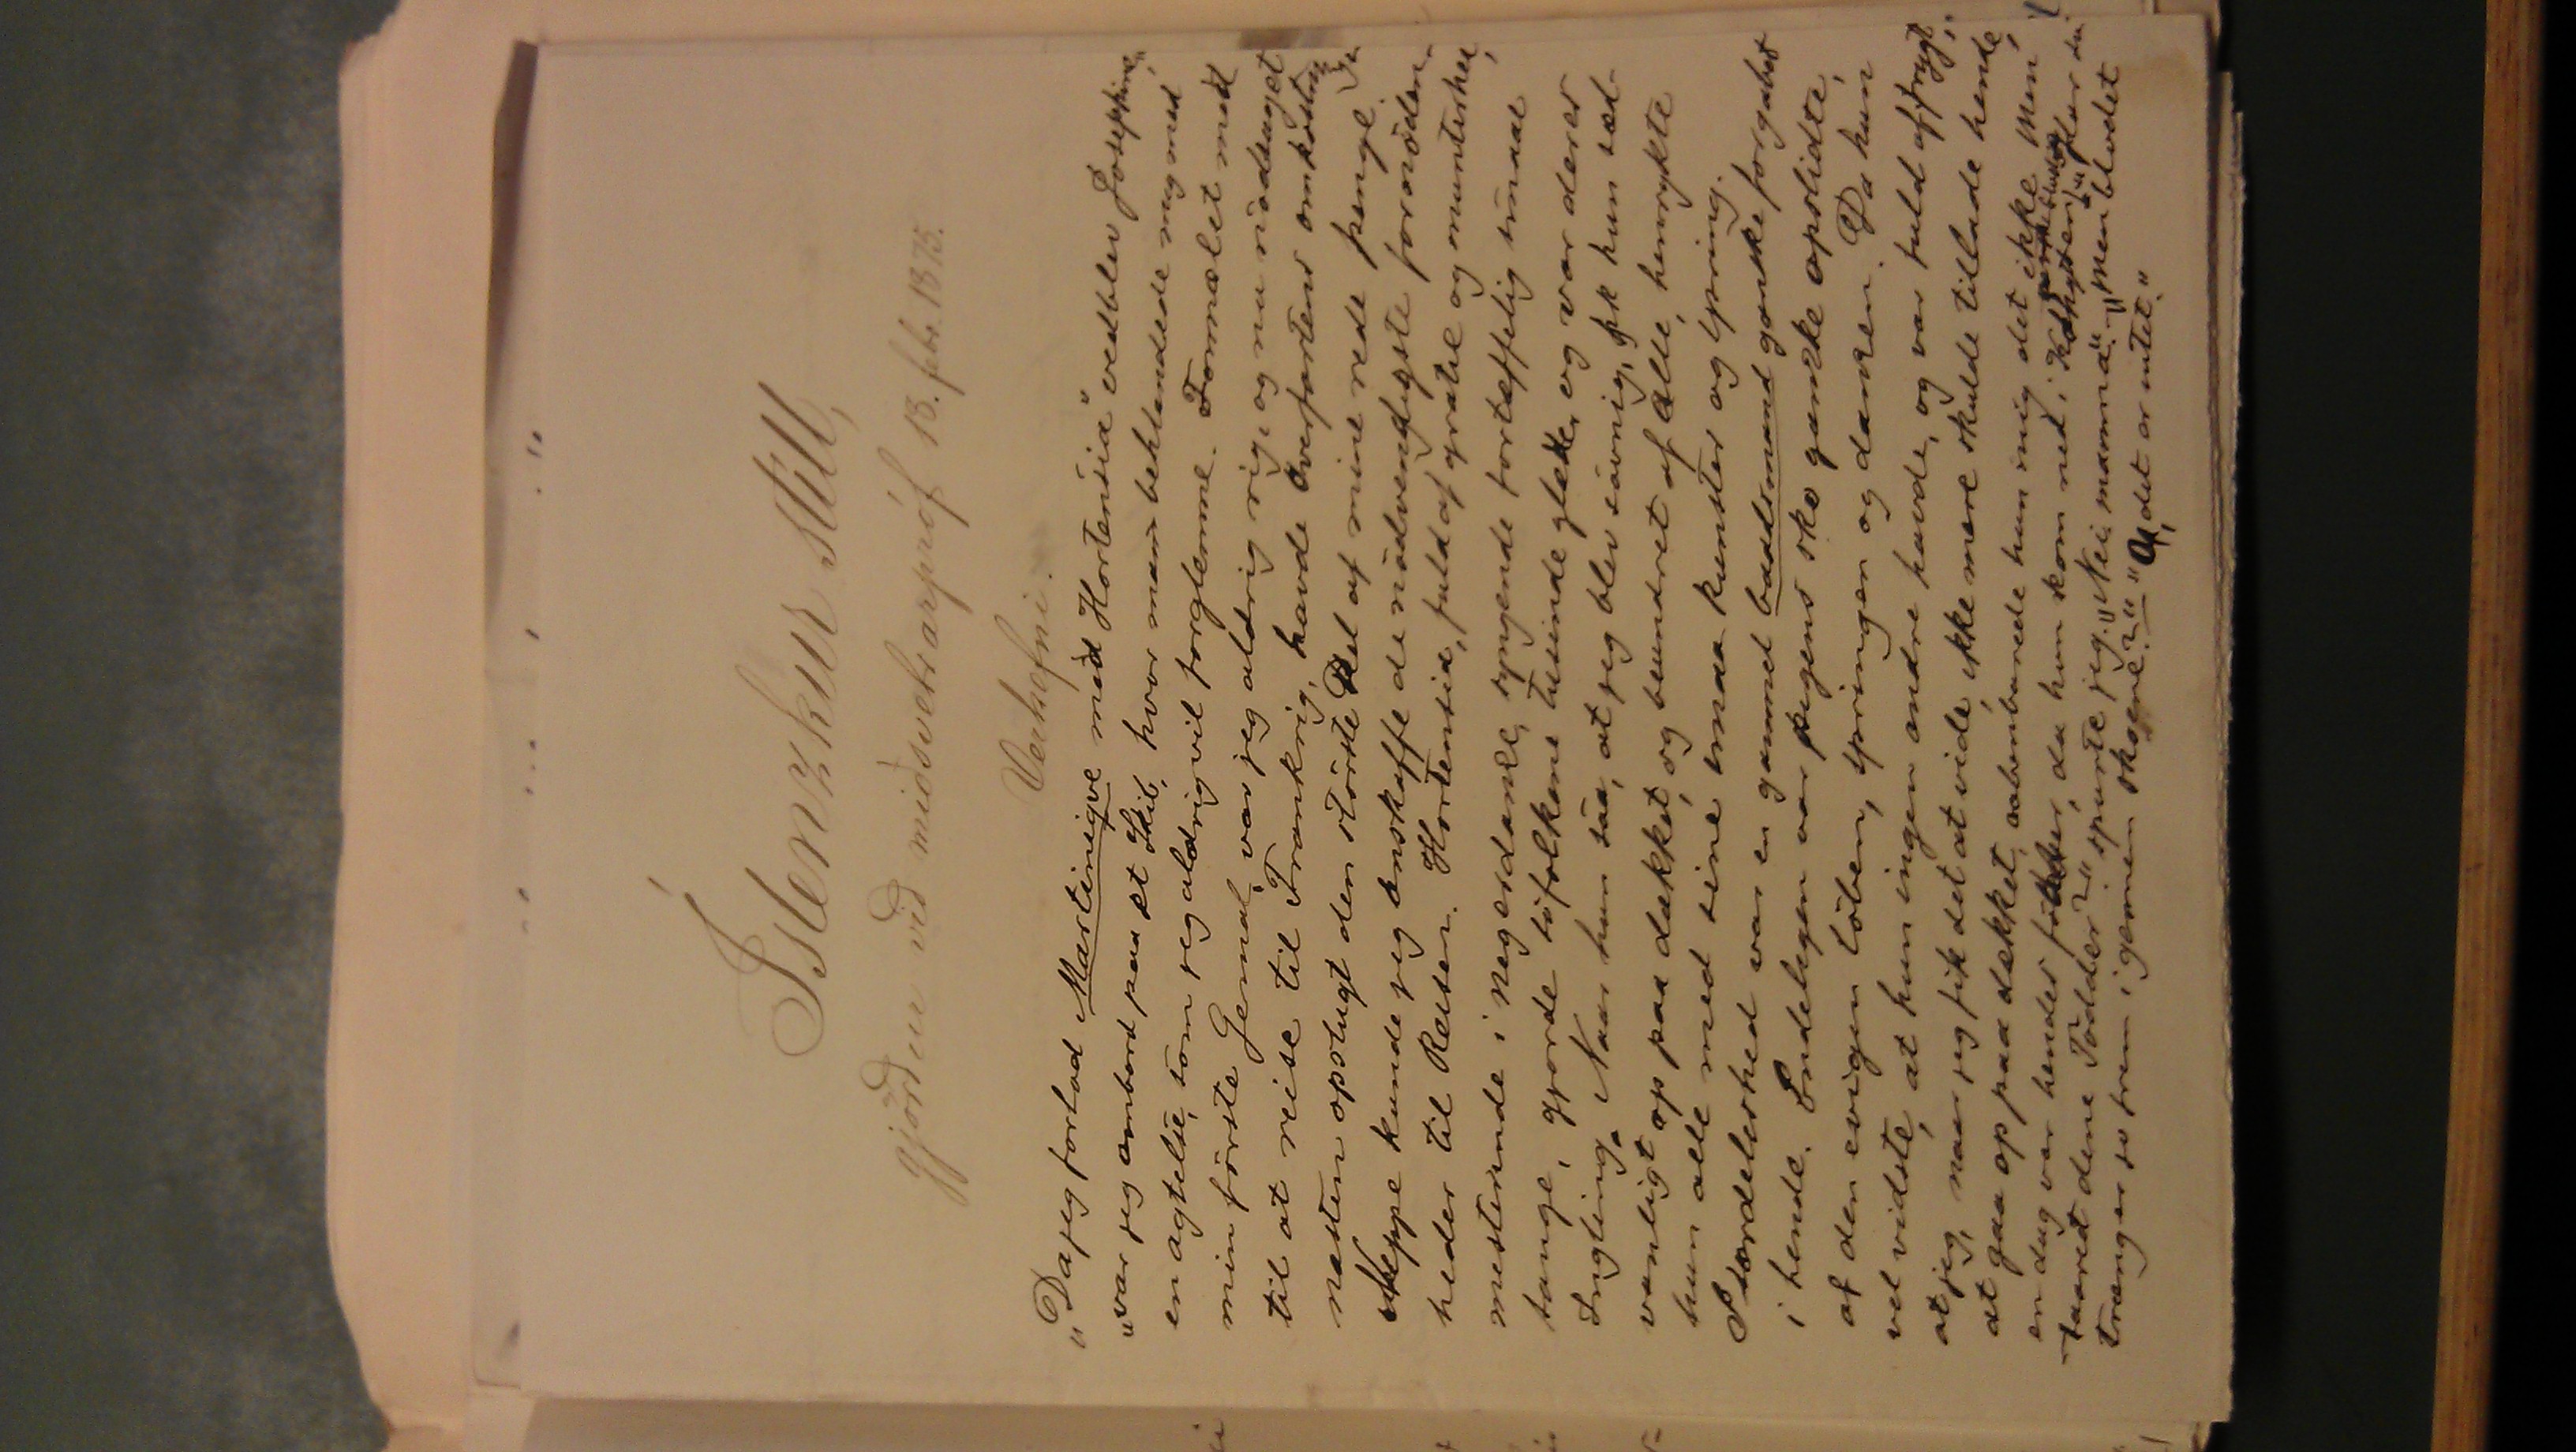 Íslenzkur stíll,
gjörður við miðsvetrarpróf 13. febr. 1875.
Verkefni.
„Da jeg forlod Martinique med Hortensia" vedblev Josephine,
„var jeg ombord paa et Skib, hvor man behandlede mig med
en agtelse, som jeg aldrig vil forglemme. Formælet med
min förste Gemal, var jeg aldrig rig, og nu nödsaget
til at reise til Frankrig, havde Overfartens omkostn
næsten opslugt den störste Del af mine rede penge.
Neppe kunde jeg anskaffe de nödvendigste fornöden-
heder til Reisen. Hortensia, fuld af gratie og munterhed,
mesterinde i negerdanse, syngende fortæffelig smaae
sange, gjorde söfolkene tusinde glæder, og var deres
Yngling. Naar hun saa, at jeg blev sövnig, gik hun sæd-
vanligt op paa dækket, og beundret af alle, henrykte
hun alle med sine smaa kunster og spring.
I særdeleshed var en gammel baadsmand ganske forgabet
i hende. Endeligen var pigens sko ganske opslidte,
af den evigen löben, springen og dansen. Da hun
vel vidste, at hun ingen andre havde, og var fuld af frygt,
at jeg, naar jeg fik det at vide, ikke mere skulde tillade hende,
at gaa op paa dækket, aabenbarede hun mig det ikke. Men
en dag var hendes födder, da hun kom ned i Kahyten,
saaret dine Födder?" spurte jeg. „Nei mamma". „Men blodet
trænger jo frem igennem skoene?" „O, det er intet."